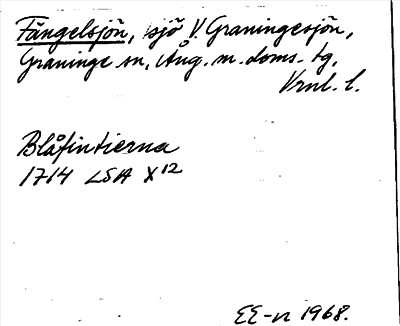 Fängelsjön, sjö V. Graningesjön,
Graninge sn, Ång. m. doms. tg,
Vrnl. l.
Blåfintierna
1714 LSA X12
EE-n 1968.